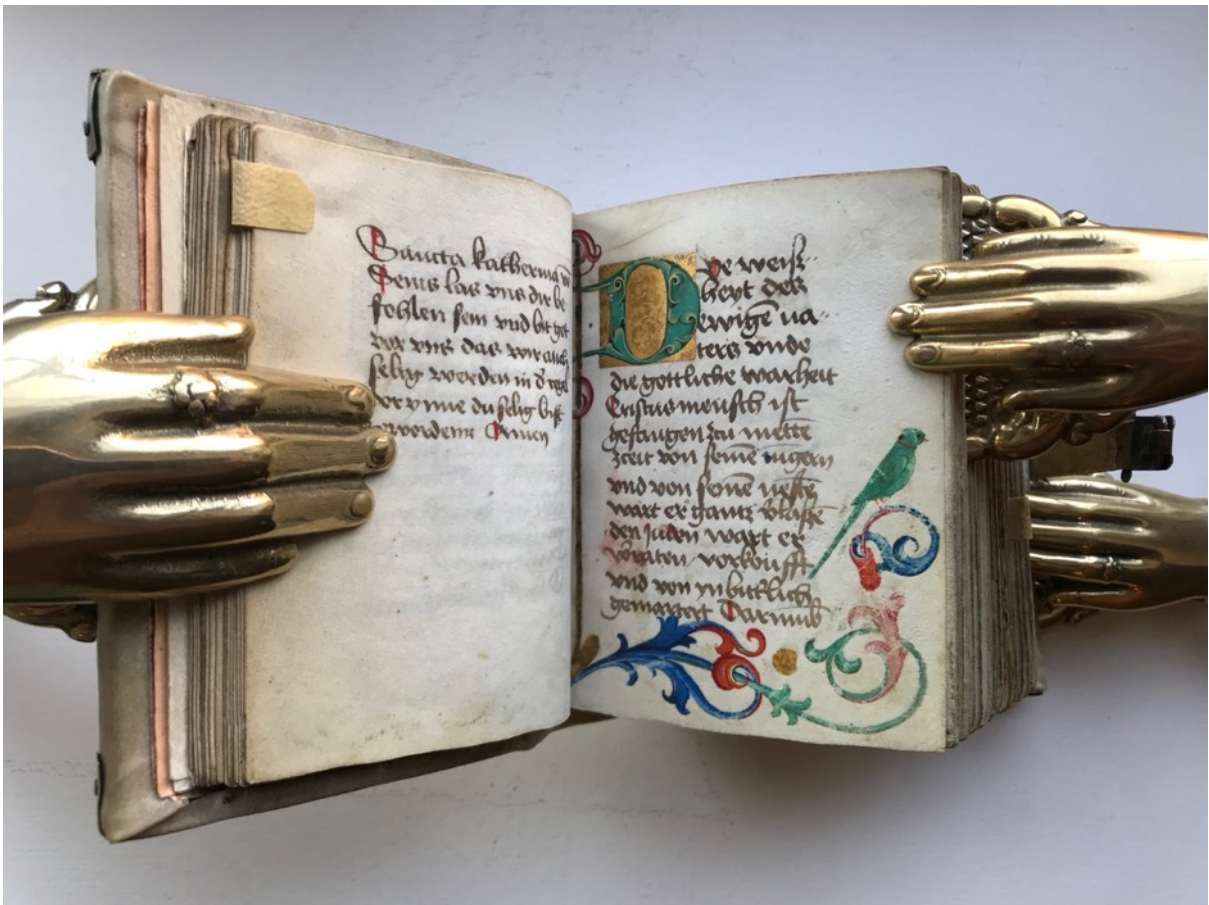 Sancta katherina vō
Senis las vns dir be
fohlen sein vnd bit got
vor vns das wir auch
selig werden in d' regel
dor ynne du selig bist
wordenn Amen
Dye weisz-
heyt des
ewigē va-
ters vnde
die gottliche warheit
Cristus mensch ist
gefangen zu mette
zceit von seinē iūgern
vnd von seinē
wart er gantz vˡlassē
den juden wart er
vorraten vorkoufft
vnd von yn bitˡlich
gemartert Darumb